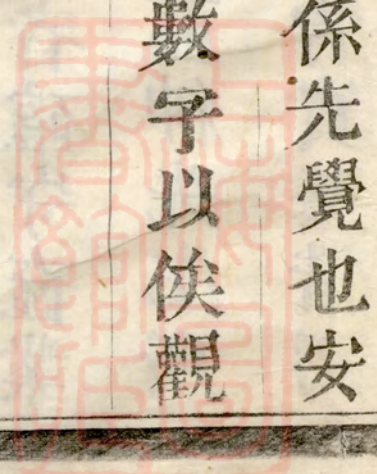 係先覺也安
數字以俟觀